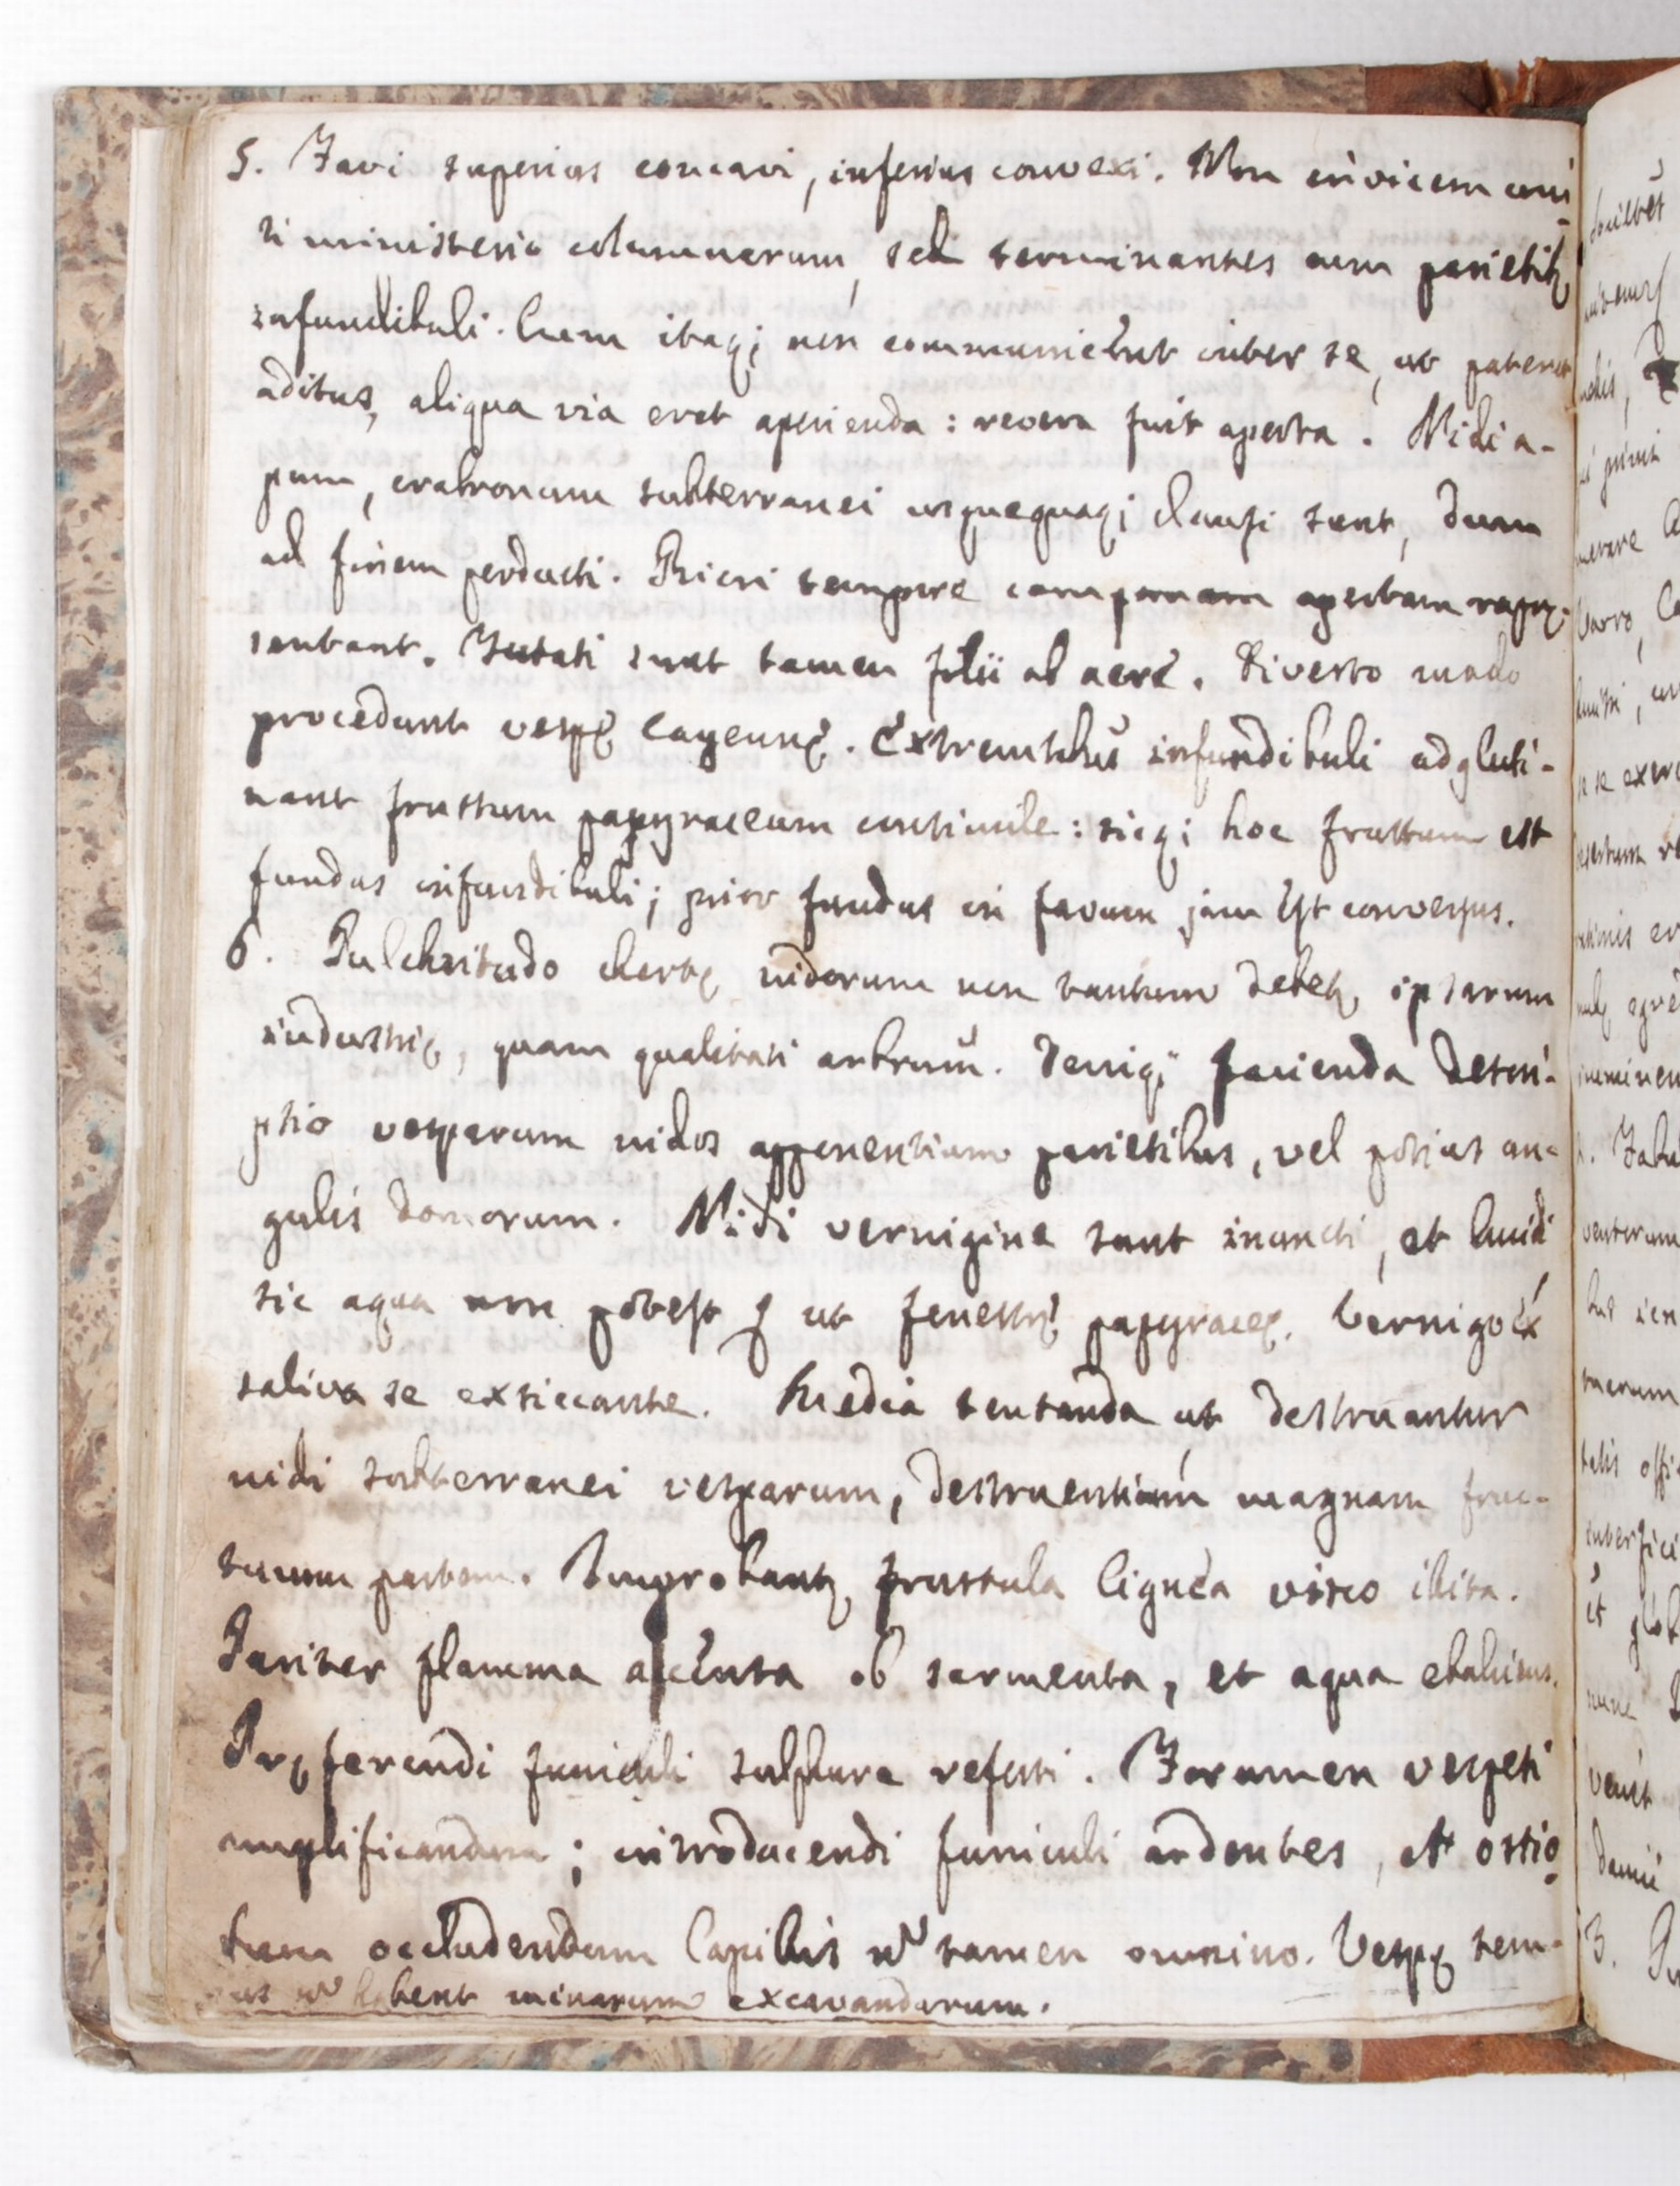 5. Favi superius concavi, inferius convexi. Non invicem uni-
ti ministerio columnarum, sed terminantes cum parietibꝫ
infundibuli. Cum itaqꝫ non communicẽnt inter se, ut pateret
aditus, aliqua via erat aperienda: revera fuit aperta. Nidi a-
pum, crabronum subterranei usquequaqꝫ clausi sunt, dum
ad finem perducti. Priori tempore campanam apertam repre-
sentant. Tutati sunt tamen filii ab aere. Diverso modo
procedunt vespę Cayennę. Extremitibus infundibuli adgluti-
nant frustum papyraceum consimile: sicqꝫ hoc frustum est
fundus infundibuli; prior fundus in favum jam est conversus.
6. Pulchritudo chartę nidorum non tantum debetꝫ ipsarum
industrię, quam qualitati arbrum̃. Deniqꝫ facienda descri-
ptio vesparum nidos apponentium parietibus, vel potius an-
gulis domorum. Nidi vernigine sunt inuncti, et lucidi
sic aqua non potest ꝗ ut fenestrę papyraceę. Vernigo ex
saliva se exsiccante. Media tentanda ut destruantur
nidi subterranei vesparum, destruentium magnam fruc-
tuum partem. Improbantꝫ frustula lignea visco ilita.
Pariter flamma accensa ob sarmenta, et aqua ebuliens.
Pręferendi funiculi sulphure referti. Foramen vespeti
amplificandum; introducendi funiculi ardentes, et ostio-
lum occludendum lapillis nõ tamen omnino. Vespę tem-
pus nõ habent minarum excavandarum.